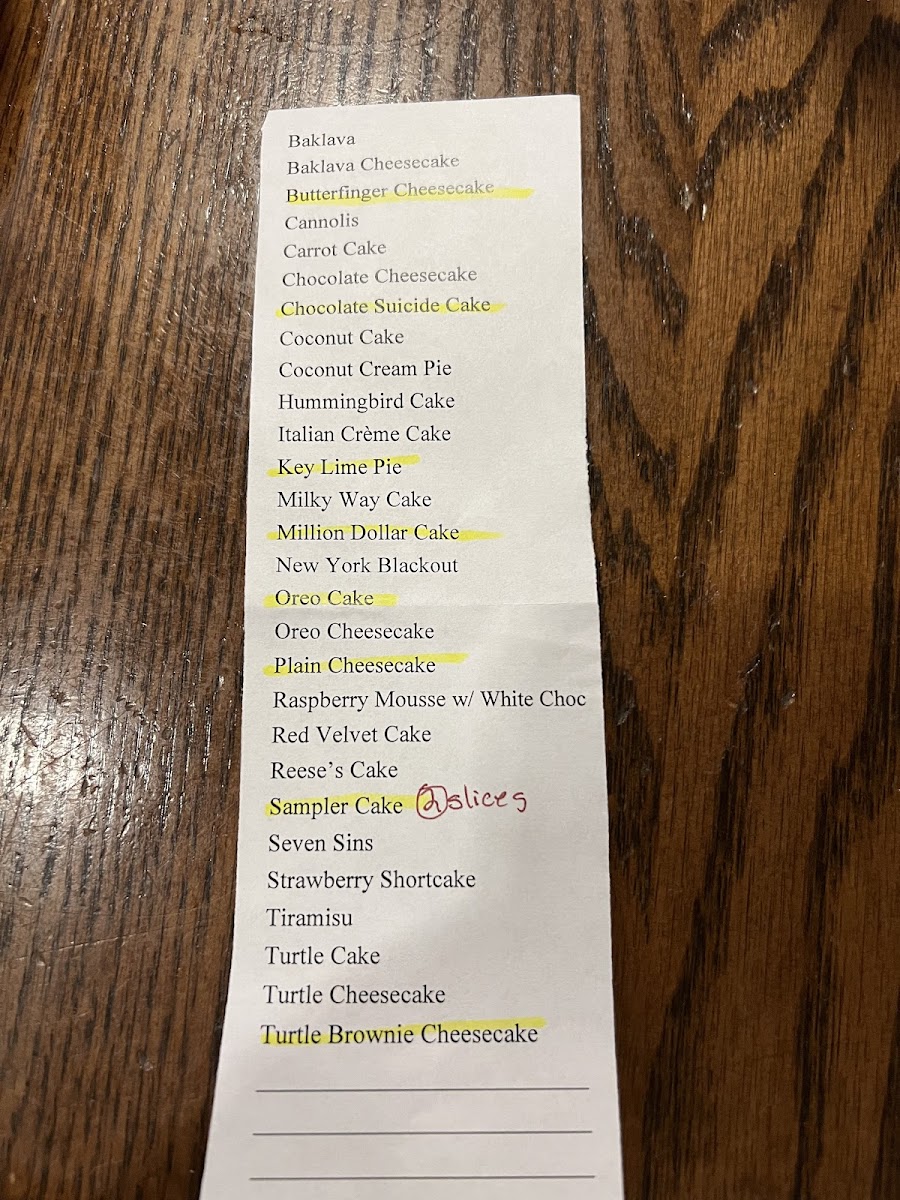 Baklava
Baklava Cheesecake
Butterfinger Cheesecake
Cannolis
Carrot Cake
Chocolate Cheesecake
Chocolate Suicide Cake
Coconut Cake
Coconut Cream Pie
Hummingbird Cake
Italian Crème Cake
Key Lime Pie
Milky Way Cake
Million Dollar Cake
New York Blackout
Oreo Cake
Oreo Cheesecake
Plain Cheesecake
Raspberry Mousse w/ White Choc
Red Velvet Cake
Reese’s Cake
Sampler Cake 2 slices
Seven Sins
Strawberry Shortcake
Tiramisu
Turtle Cake
Turtle Cheesecake
Turtle Brownie Cheesecake